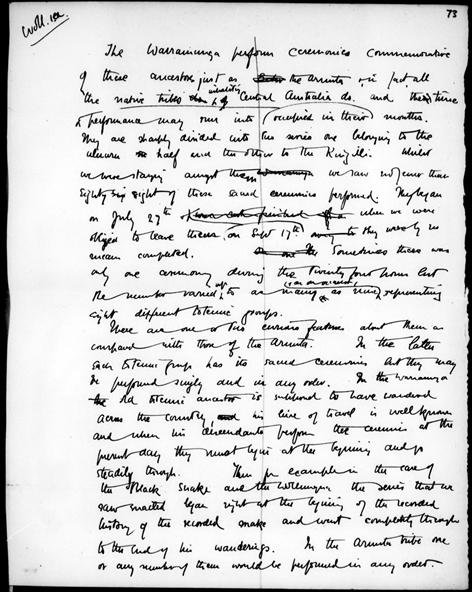 73
The Warramunga perform ceremonies commemorative
of these ancestors just as the Arunta & in fact all
the native tribes inhabiting Central Australia do. and the time
of performance may run into months.
They are sharply divided into two series one belonging to the
uluuru half and the other to the Kingilli. Whilst
we were staying amongst them we saw no fewer than
Eighty six eight of these sacred ceremonies performed. They began
on July 27th when we were
obliged to leave them on Sept 17th they were by no
means completed. Sometimes there was
only one ceremony during the twenty four hours but
the number varied up to as many as nine representing
eight different totemic groups.
There are one or two curious features about them as
compared with those of the Arunta. In the latter
each totemic group has its sacred ceremonies but they may
be performed singly and in any order. In the Warramunga
the old totemic ancestor is supposed to have wandered
across the country, his line of travel is well known
and when his descendants perform the ceremonies at the
present day they must begin at the beginning and go
steadily through. Thus for example in the case of
the Black Snake and the Wollunqua the series that we
saw enacted began right at the beginning of the recorded
history of the recorded snake and went completely through
to the end of his wanderings. In the Arunta tribe one
or any number of them would be performed in any order.